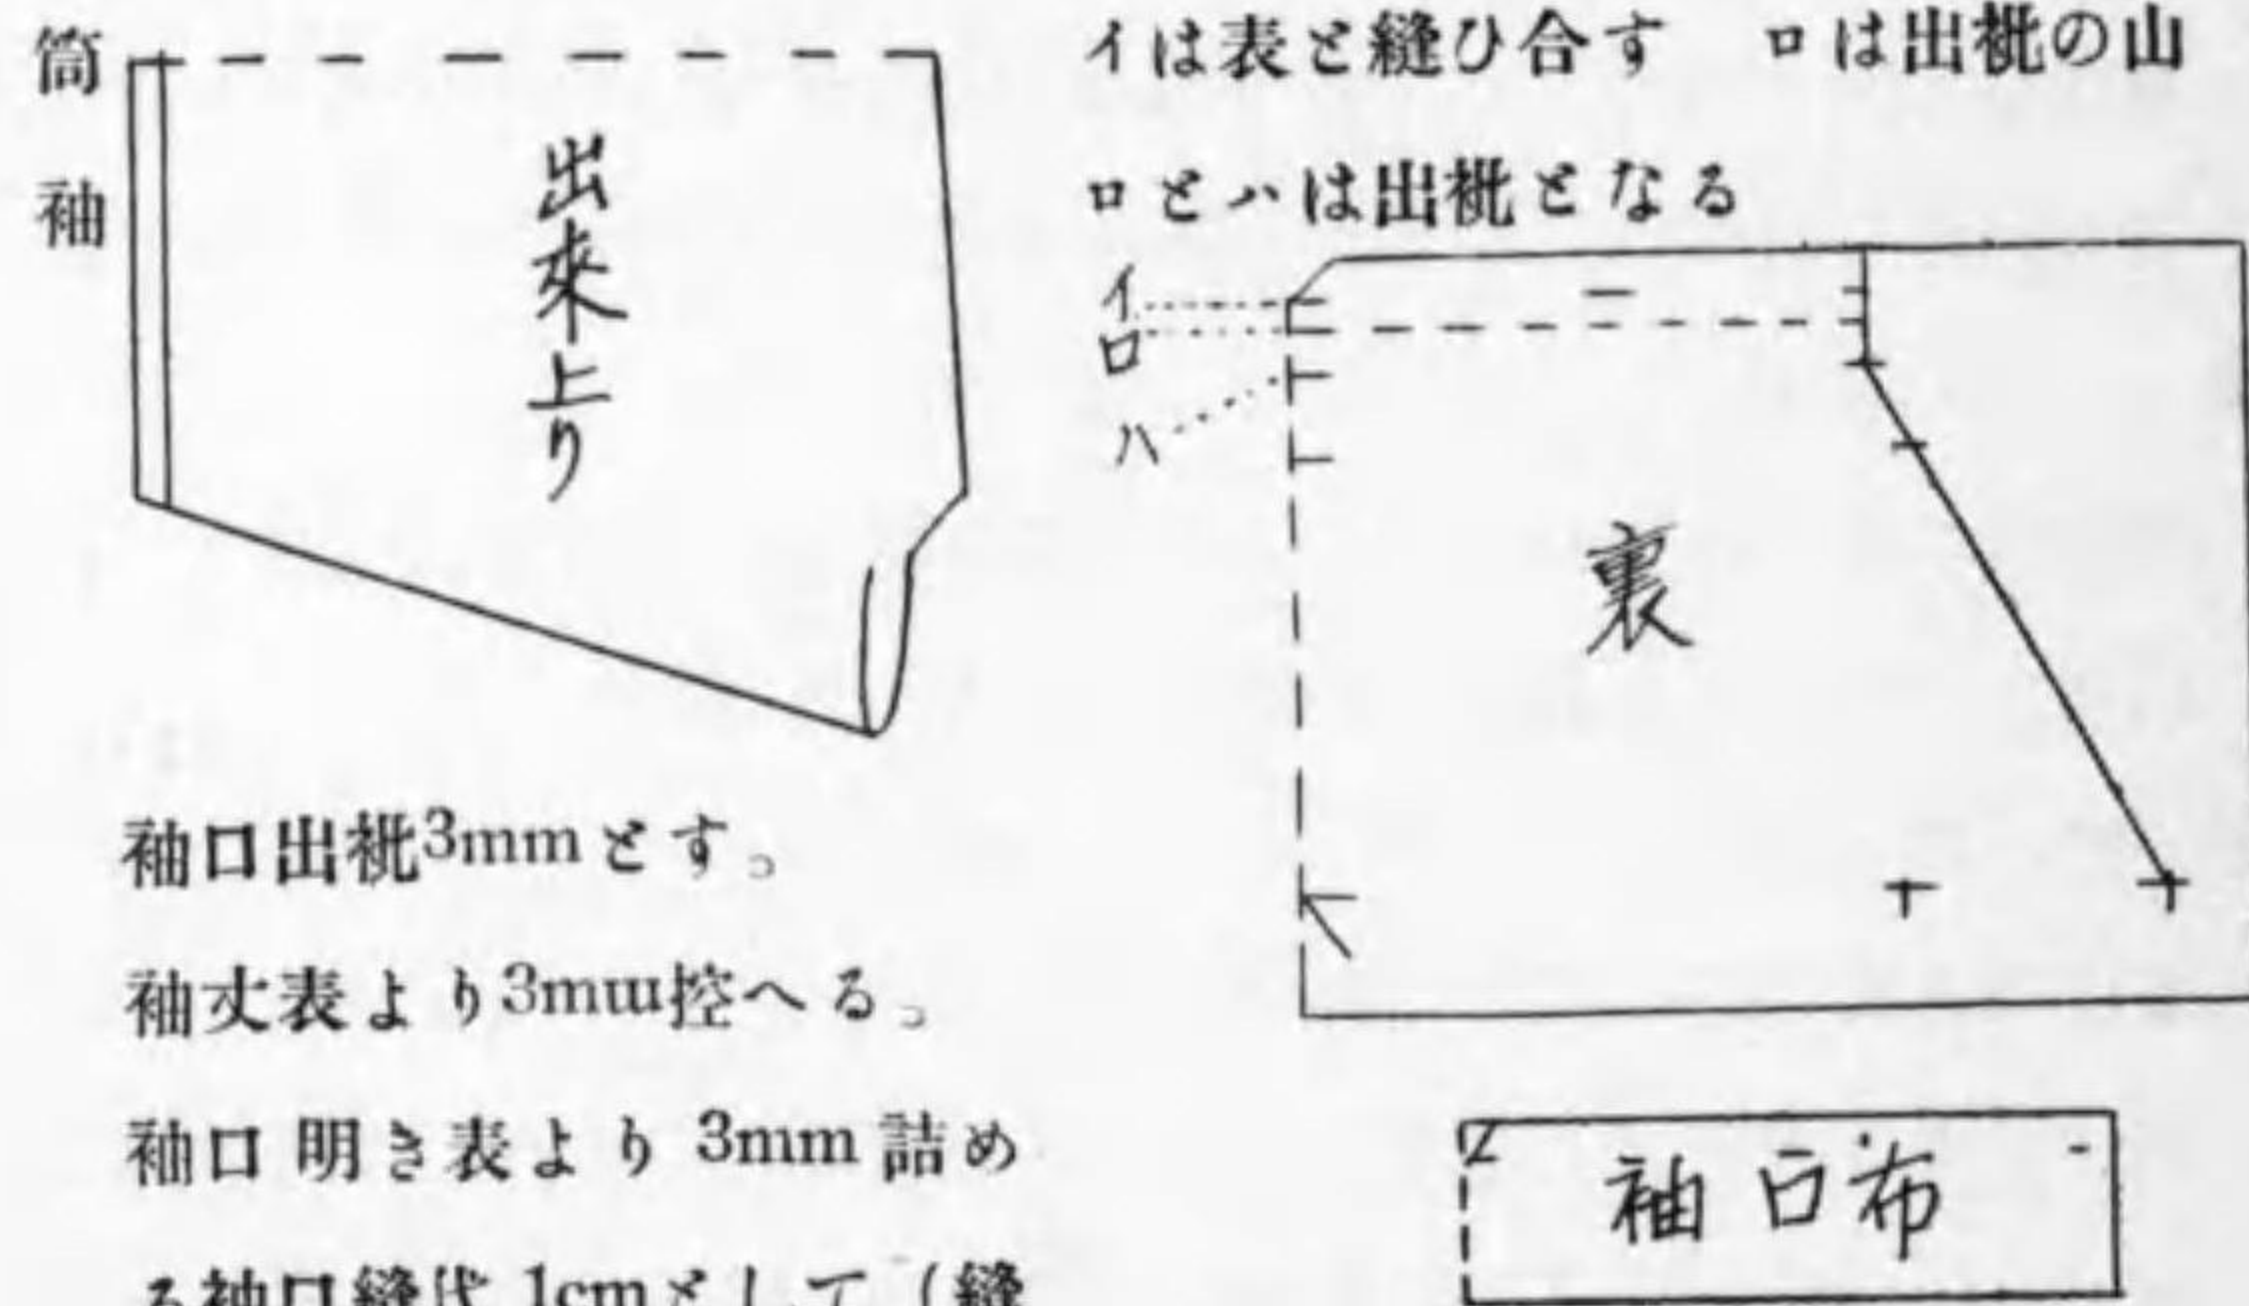 筒袖
出來上り
イは表と縫ひ合す　ロは出㧗の山
ロとハは出㧗となる
イ
ロ
ハ
裏
袖口出㧗3mmとす。
袖丈表より3mm控へる。
袖口明き表より 3mm 詰め
る袖口縫代 1cmとして（縫
袖口布